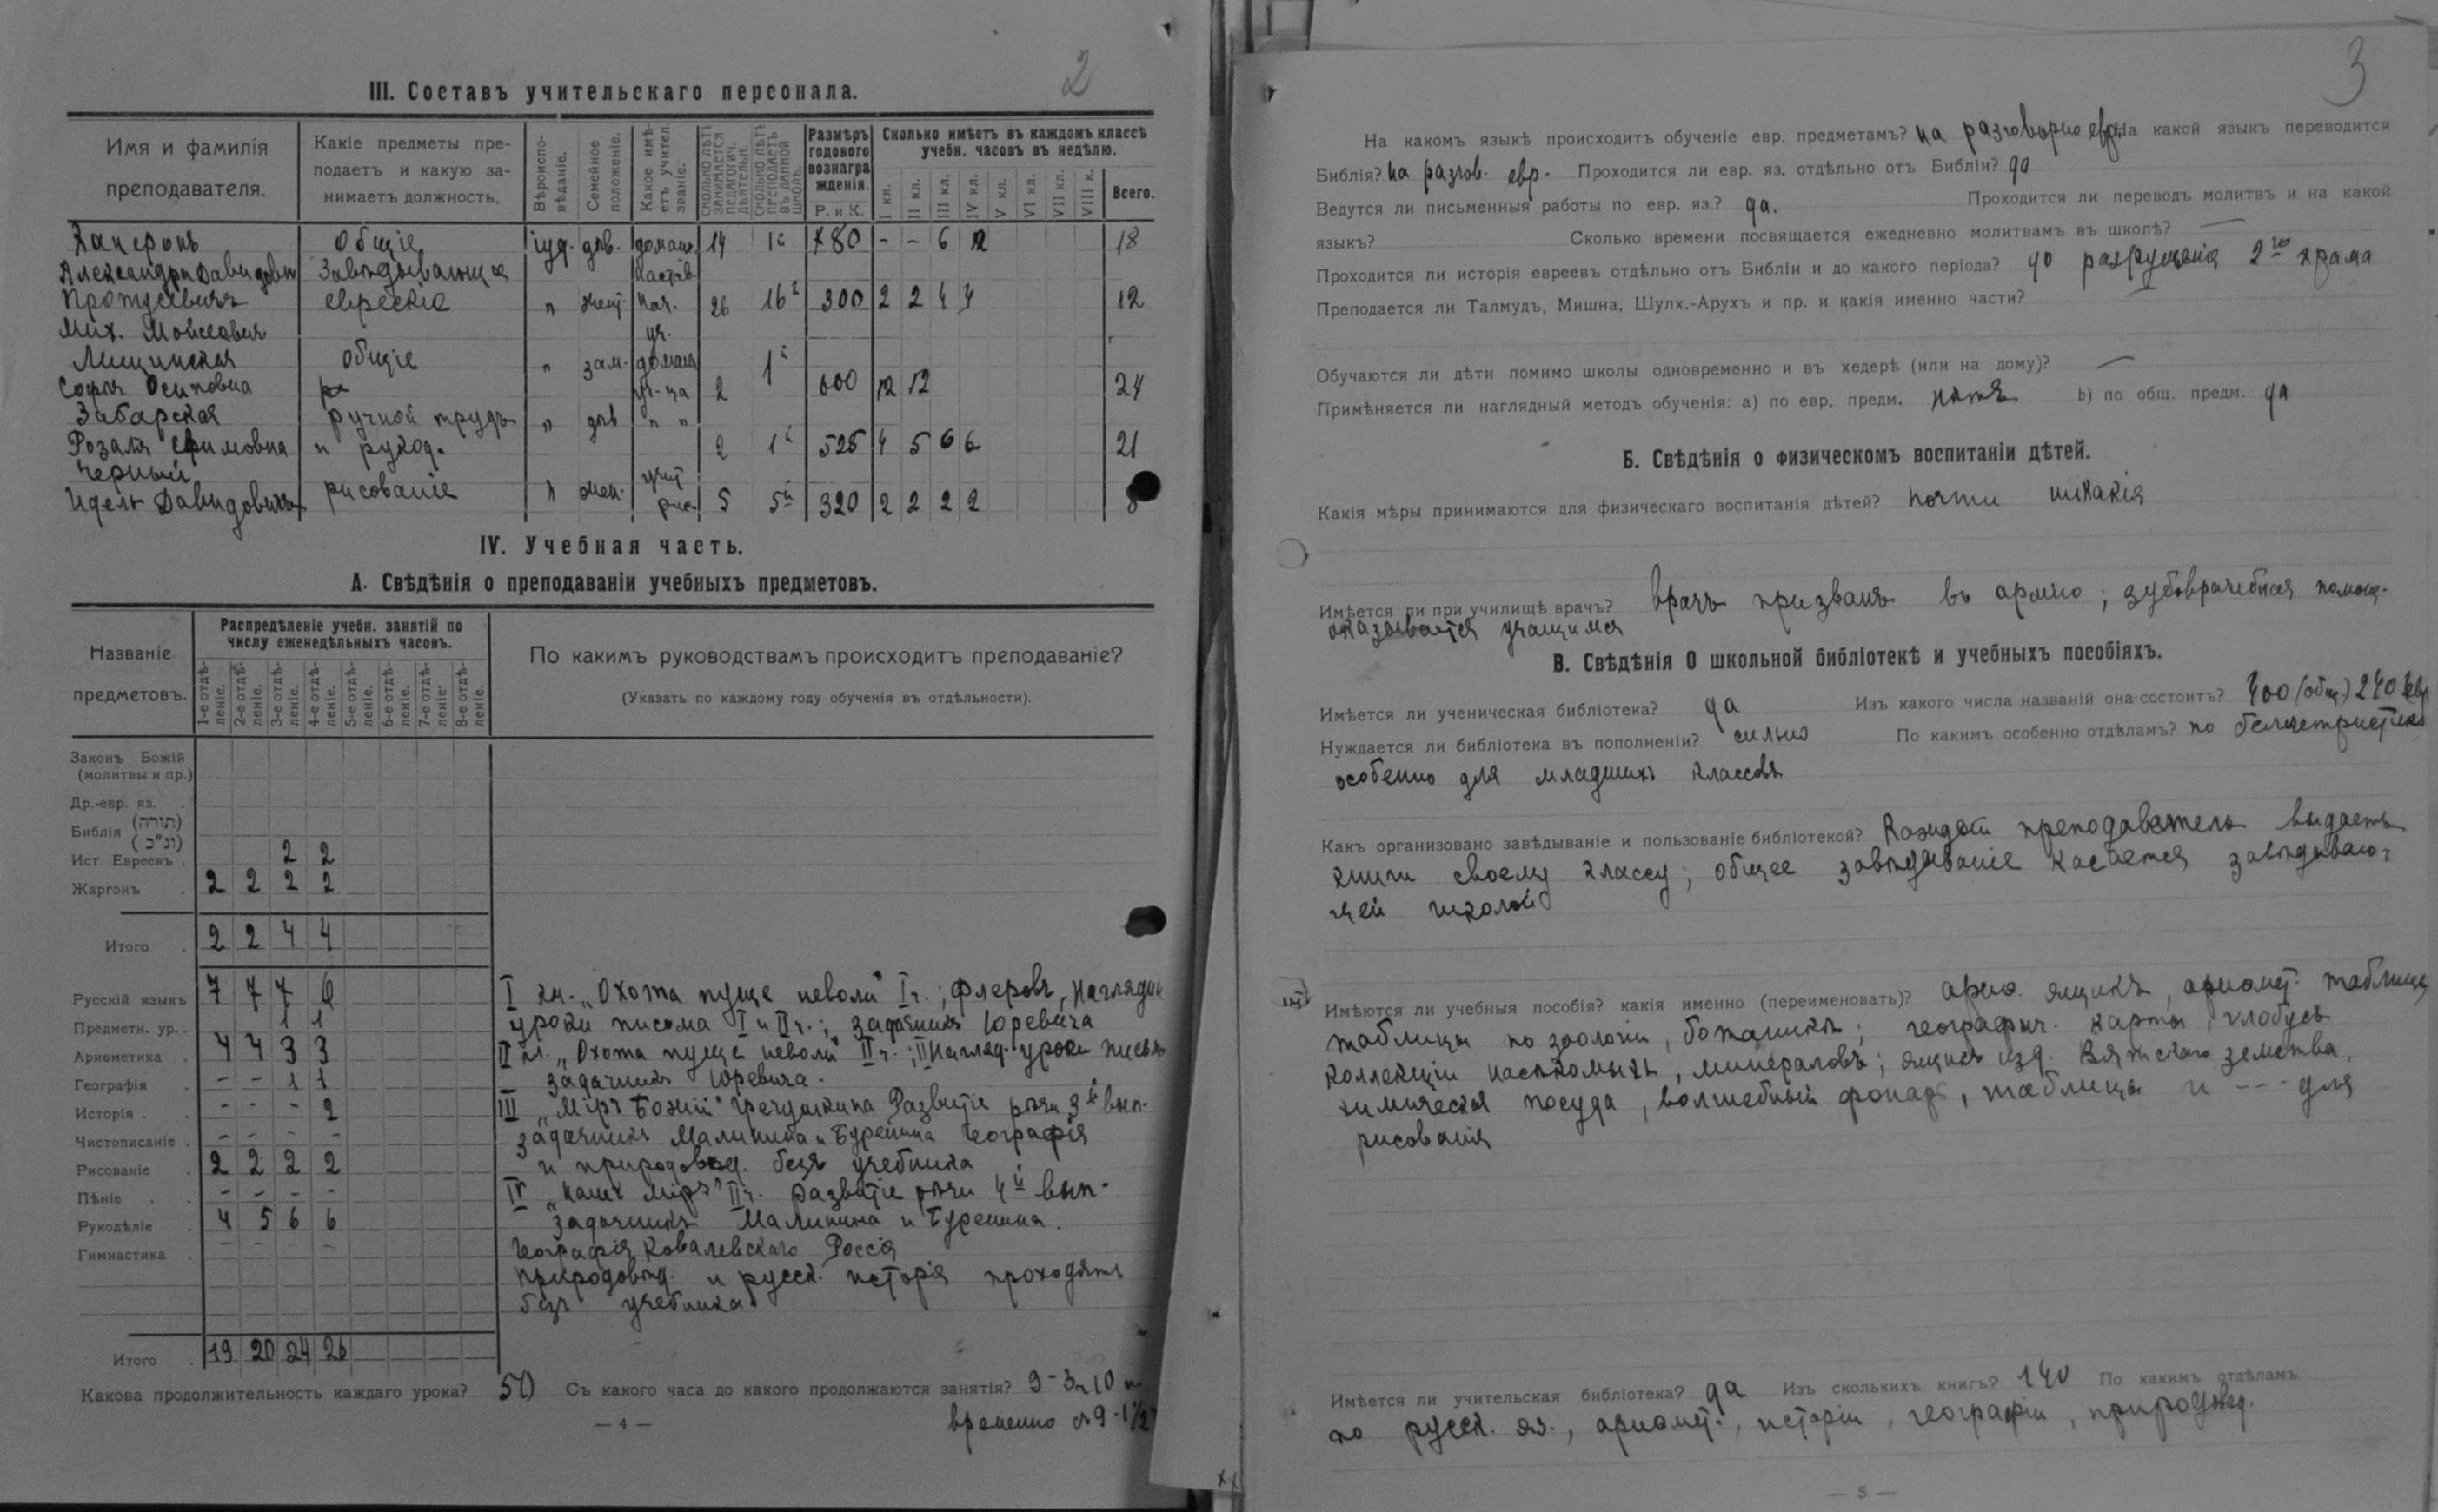 2
III. Составъ учительскаго персонала.
Имя и фамилія преподавателя.
Какіе предметы преподаетъ и какую занимаетъ должность.
Вѣроисповѣданіе.
Семейное положеніе.
Какое имѣетъ учител. званіе.
Сколько лѣтъ занимается педагогич. дѣятельн.
Сколько лѣтъ преподаетъ въ данной школѣ.
Размѣръ годового вознагражденія.
Р. и К.
Сколько имѣетъ въ каждомъ классѣ учебн. часовъ въ недѣлю.
I кл. II кл. III кл. IV кл. V кл. VI кл. VII кл. VIII к. Всего.
общіе іуд. дѣв. домашн. 14 1й 780 - - 6 12 18
Александра Давидовн завѣдывающая настав.
еврейскіе " жен. нач. 26 16й 300 2 2 4 4 12
Мих. Моисеевич уч.
Лещинская общіе " зам. домашн 1й
Софья Осиповна уч-ца 2 600 12 12 24
Забарская ручной трудъ " дѣв " "
Розалія Ефимовна и рукод. 2 1й 525 4 5 6 6 21
Черный учит
Идель Давидовичъ рисованіе " жен. рис. 5 5й 320 2 2 2 2 8
IV. Учебная часть.
А. Свѣдѣнія о преподаваніи учебныхъ предметовъ.
Названіе предметовъ.
Распредѣленіе учебн. занятій по числу еженедѣльныхъ часовъ.
1-е отдѣленіе. 2-е отдѣленіе. 3-е отдѣленіе. 4-е отдѣленіе. 5-е отдѣленіе. 6-е отдѣленіе. 7-е отдѣленіе. 8-е отдѣленіе.
По какимъ руководствамъ происходитъ преподаваніе?
(Указать по каждому году обученія въ отдѣльности).
Законъ Божій
(молитвы и пр.)
Др.-евр. яз. .
Библія (תורה)
(נ"כ)
Ист. Евреевъ . 2 2
Жаргонъ . 2 2 2 2
Итого . 2 2 4 4
Русскій языкъ 7 7 7 6
Предметн. ур. . 1 1
Ариѳметика . 4 4 3 3
Географія . - - 1 1
Исторія . . - - - 2
Чистописаніе . - - - -
Рисованіе . 2 2 2 2
Пѣніе . . - - - -
Рукодѣліе . 4 5 6 6
Гимнастика . - - -
Итого . 19 20 24 26
I кл. „Охота пуще неволи" I ч.; Флеровъ, Наглядн
уроки письма I и II ч.; задачникъ Юревича
II кл. „Охота пуще неволи" II ч.; II Нагляд. уроки письм
задачникъ Юревича.
III „Міръ Божій" Гречушкина Развитіе рѣчи 3й вып.
задачникъ Малинина и Буренина География
и природовѣд. безъ учебника
IV „Нашъ міръ" II ч. Развитіе рѣчи 4й вып.
задачникъ Малинина и Буренина.
Географія Ковалевскаго Россія
Природовѣд. и русск. исторія проходятъ
безъ учебника
Какова продолжительность каждаго урока? 50 Съ какого часа до какого продолжаются занятія? 9-3ч10
временно съ 9-1½
— 4 —
3
На какомъ языкѣ происходитъ обученіе евр. предметамъ? на разговорно евр. На какой языкъ переводится
Библія? на разгов. евр. Проходится ли евр. яз. отдѣльно отъ Библіи? да
Ведутся ли письменныя работы по евр. яз.? да. Проходится ли переводъ молитвъ и на какой
языкъ? Сколько времени посвящается ежедневно молитвамъ въ школѣ? —
Проходится ли исторія евреевъ отдѣльно отъ Библіи и до какого періода? до разрушенія 2го храма
Преподается ли Талмудъ, Мишна, Шулх.-Арухъ и пр. и какія именно части? —
Обучаются ли дѣти помимо школы одновременно и въ хедерѣ (или на дому)? —
Примѣняется ли наглядный методъ обученія: а) по евр. предм. нѣтъ b) по общ. предм. да
Б. Свѣдѣнія о физическомъ воспитаніи дѣтей.
Какія мѣры принимаются для физическаго воспитанія дѣтей? почти никакія
Имѣется ли при училищѣ врачъ? врачъ призванъ въ армію; зубоврачебная помощ.
оказывается учащимся
В. Свѣдѣнія о школьной библіотекѣ и учебныхъ пособіяхъ.
Имѣется ли ученическая библіотека? да Изъ какого числа названій она состоитъ? 400 (общ) 240 евр
Нуждается ли библіотека въ пополненіи? сильно По какимъ особенно отдѣламъ? по беллетристикѣ
особенно для младшихъ классовъ
Какъ организовано завѣдываніе и пользованіе библіотекой? Каждый преподаватель выдаетъ
книги своему классу; общее завѣдываніе касается завѣдываю-
щей школой
Имѣются ли учебныя пособія? какія именно (переименовать)? ариѳ. ящикъ, ариѳмет. таблицы
таблицы по зоологіи, ботаникѣ; географич. карты, глобусъ
коллекціи насѣкомыхъ, минераловъ; ящикъ изд. Вятскаго земства,
химическая посуда, волшебный фонарь, таблицы и --- для
рисованія
Имѣется ли учительская библіотека? да Изъ сколькихъ книгъ? 140 По какимъ отдѣламъ
по русск. яз., ариѳмет., исторіи, географіи, природовѣд.
— 5 —